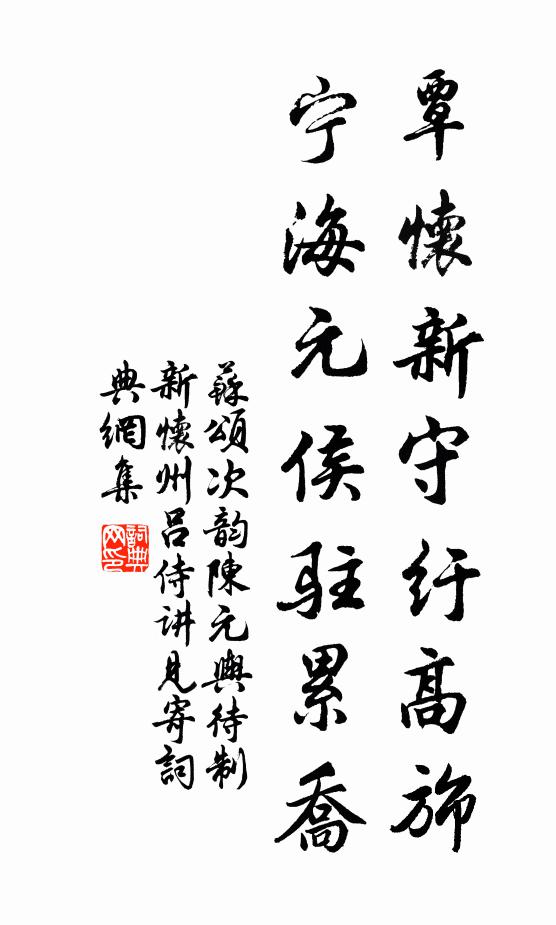 覃懷新守纡高旆
宁海元侯駐累喬
蘇頌次韵陳元輿待制
新懷州吕侍讲見寄詞
典網集
詞典
网印